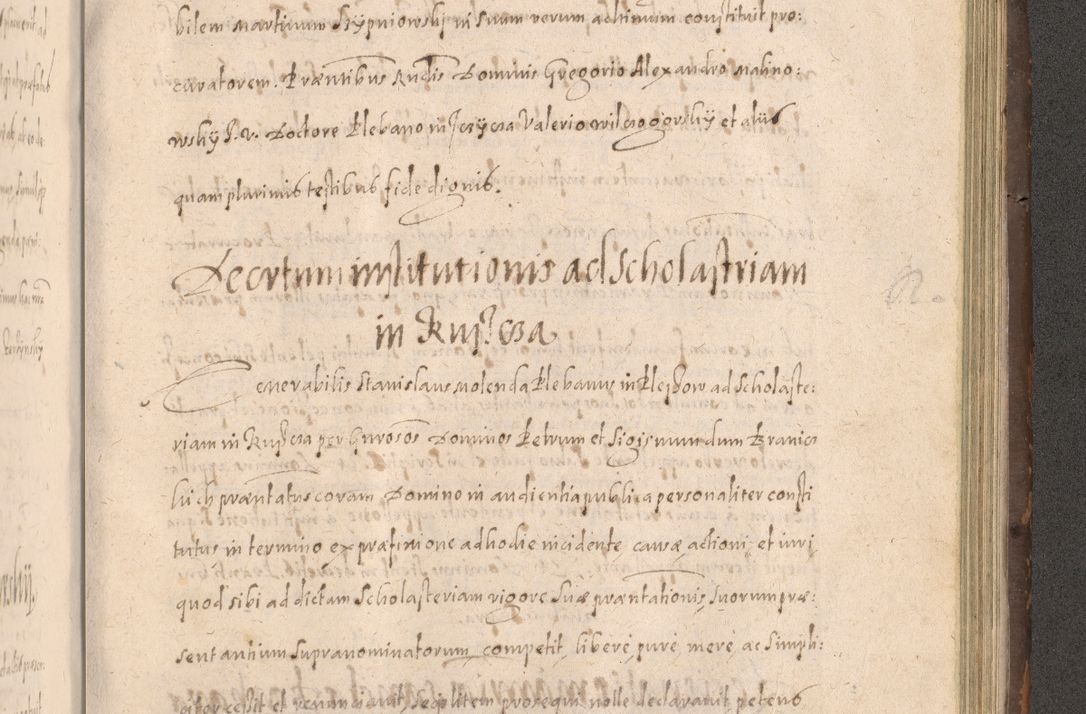 bilem Martinum Szypniowskj in suum verum ac himum constituit pro:
curatorem. Præntibus Rndis Dominis Gregorio Alexandro Malino:
wskÿ I. V. Doctore Plebano in Valerio et aliis
quam plurimis testibus fide dignis.
Decrtum institutionis ad Scholastriam
in
Venerabilis Stanislaus Molenda Plebanus in ad Scholaste:
riam in per Gnrosos Dominos Petrum et Sigismundum
præntatus coram Domino in audientia publica personaliter consti
tutus in termino ex præfixione ad hodie incidente, causæ actioni, et iuri
quod sibi ad dictam Scholasteriam vigore suæ præntationis suorum præ:
sentantium supranominatorum competit, liberè, purè, merè, ac simpli:
citer cessit et renunciavit, seqz litem prosequi nolle declaravit petens